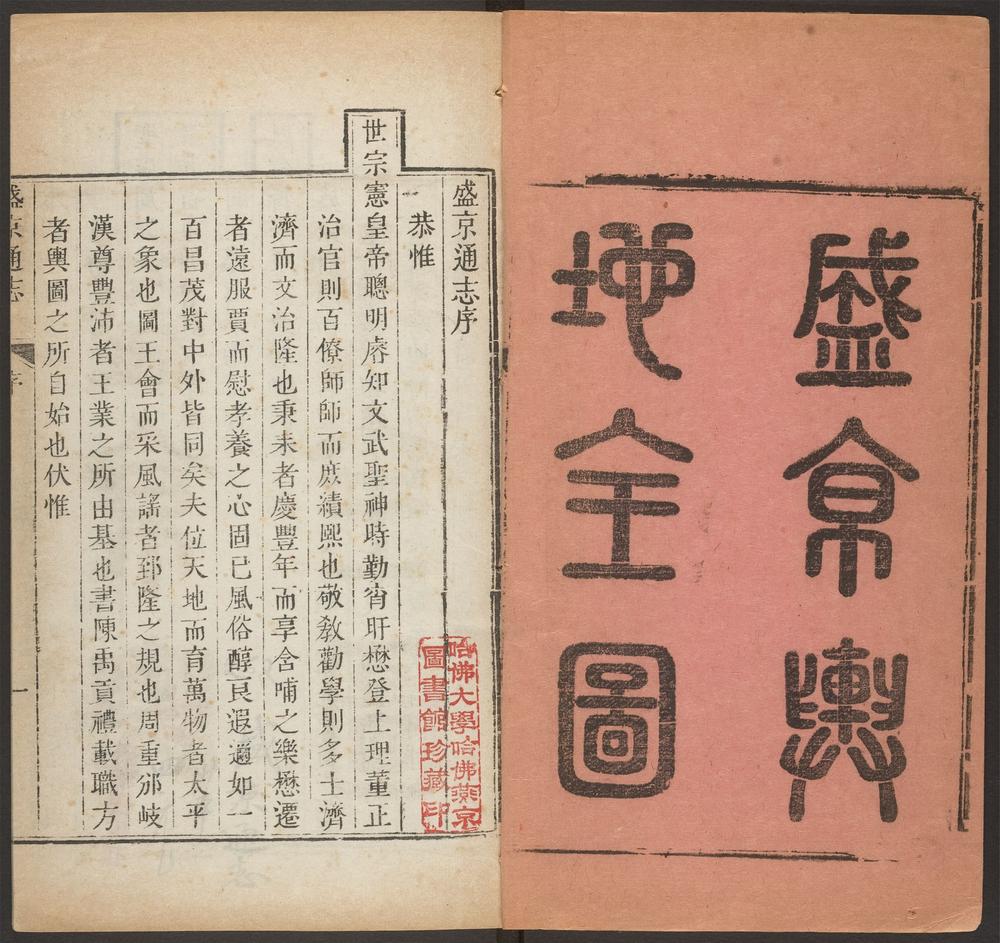 盛京輿
地全圖
盛京通志序
恭惟
世宗憲皇帝聰明睿知文武聖神時勤宵旰懋登上理董正
治官則百僚師師而庶績熙也敬敎勸學則多士濟
濟而文治隆也秉耒者慶豐年而享含哺之樂懋遷
者遠服賈而慰孝養之心固已風俗醇良遐邇如一
百昌茂對中外皆同矣夫位天地而育萬物者太平
之象也圖王會而采風謠者郅隆之規也周重邠岐
漢尊豐沛者王業之所由基也書陳禹貢禮載職方
者輿圖之所自始也伏惟
盛京通志
序
一
哈佛大學哈佛燕京
圖書館珍藏印